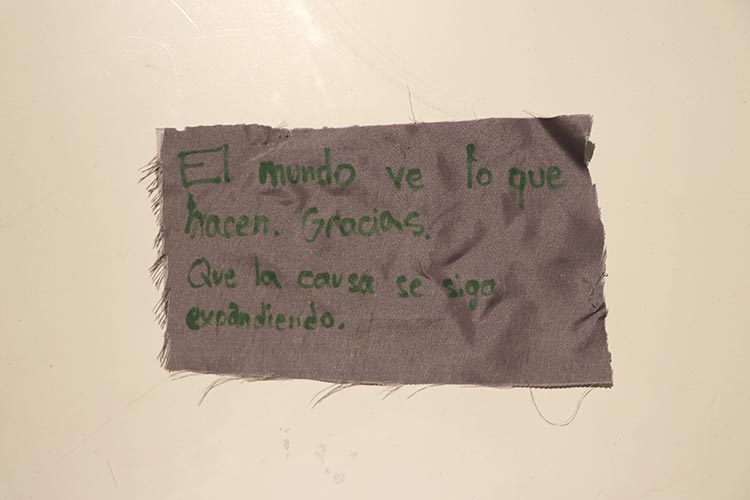 El mundo ve lo que
hacen. Gracias.
Que la causa se siga
expandiendo.